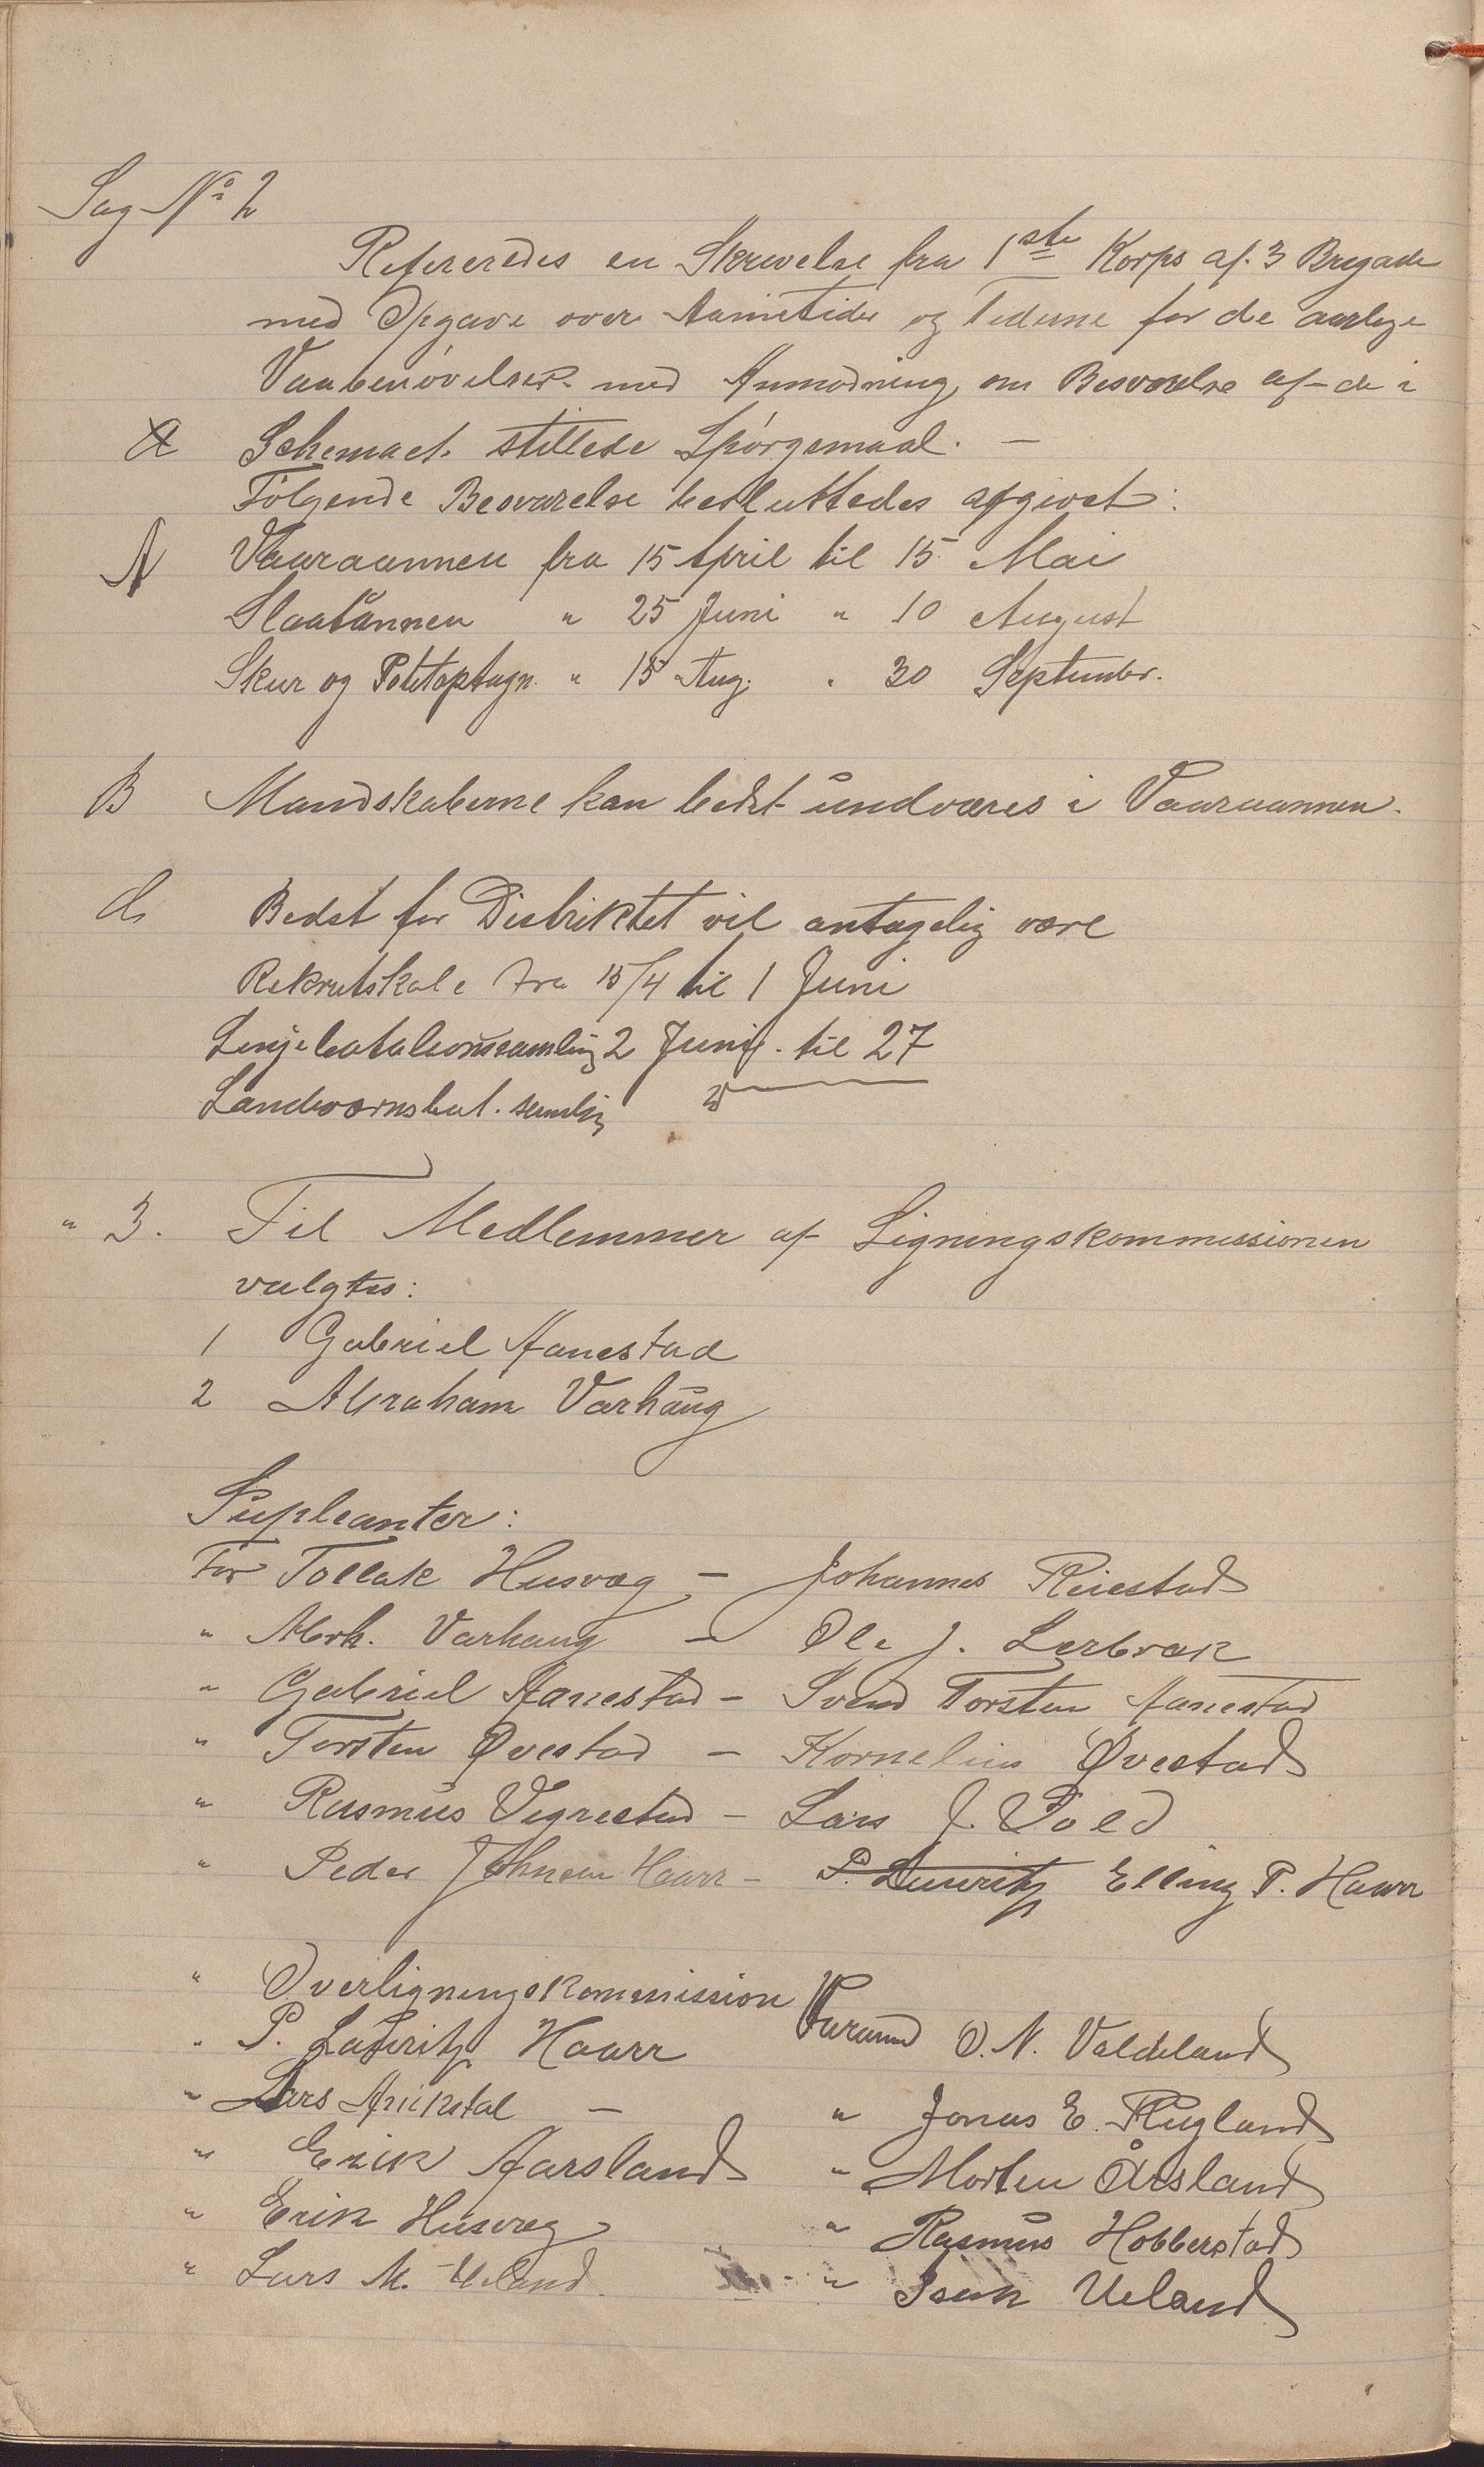 Sag No 2
Refereredes en Skrivelse fra 1ste Korps af 3 Brigade
med Opgave over Aannetider og Tiderne for de aarlige
Vaabenøvelser med Anmodning om Besvarelse af de i
Schemaet stillede Spørgsmaal. —
Følgende Besvarelse besluttedes afgivet:
A Vaaraannen fra 15 April til 15 Mai
Slaatannen " 25 Juni " 10 August
Skur og Potetoptagn. " 15 Aug. " 30 September.
B Mandskaberne kan bedst undværes i Vaaraannen.
C. Bedst for Distriktet vil antagelig være
Rekrutskole fra 15/4 til 1 Juni
Linjebataljonssamling 2 Juni til 27
Landværnsbat. samling
" 3. Til Medlemmer af Ligningskommissionen
valgtes:
1 Gabriel Aanestad
2 Abraham Varhaug
Supleanter:
For Tollak Husvæg — Johannes Reiestad
" Abrh. Varhaug — Ole J. Lerbræk
" Gabriel Aanestad — Svend Torsten Aanestad
" Torsten Øvestad — Kornelius Øvestad
" Rasmus Vigrestad — Lars J. Fold
" Peder Johnsen Haarr — P. Lauritz Elling P. Haarr
" Overligningskommission
" P. Lauritz Haarr Varamd O. N. Valdeland
" Lars — " Jonas E. Rugland
" Erik Aarsland " Morten Årsland
" Erik Husvæg " Rasmus Hobberstad
" Lars M. Ueland " Isak Ueland